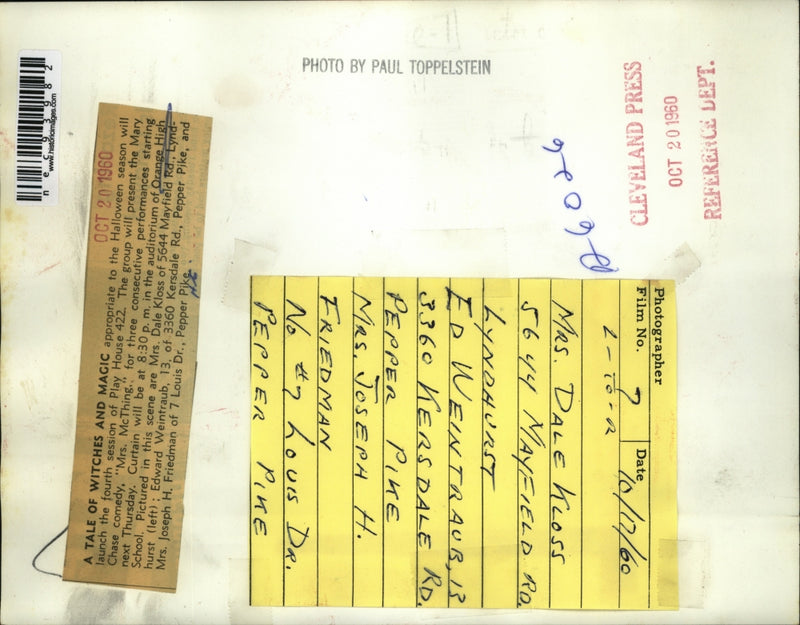 PHOTO BY PAUL TOPPELSTEIN
CLEVELAND PRESS
OCT 20 1960
REFERENCE DEPT.
nec93982
www.historicimages.com
OCT 20 1960
A TALE OF WITCHES AND MAGIC appropriate to the Halloween season will
launch the fourth session of Play House 422. The group will present the Mary
Chase comedy, "Mrs. McThing," for three consecutive performances starting
next Thursday. Curtain will be at 8:30 p. m. in the auditorium of Orange High
School. Pictured in this scene are Mrs. Dale Kloss of 5644 Mayfield Rd., Lynd-
hurst (left); Edward Weintraub, 13, of 3360 Kersdale Rd., Pepper Pike, and
Mrs. Joseph H. Friedman of 7 Louis Dr., Pepper Pike.
Photographer
Film No. 7 Date 10/17/60
MRS. DALE KLOSS
5644 MAYFIELD RD.
LYNDHURST
ED WEINTRAUB, 13
3360 KERSDALE RD.
PEPPER PIKE
MRS. JOSEPH H.
FRIEDMAN
NO #7 LOUIS DR.
PEPPER PIKE